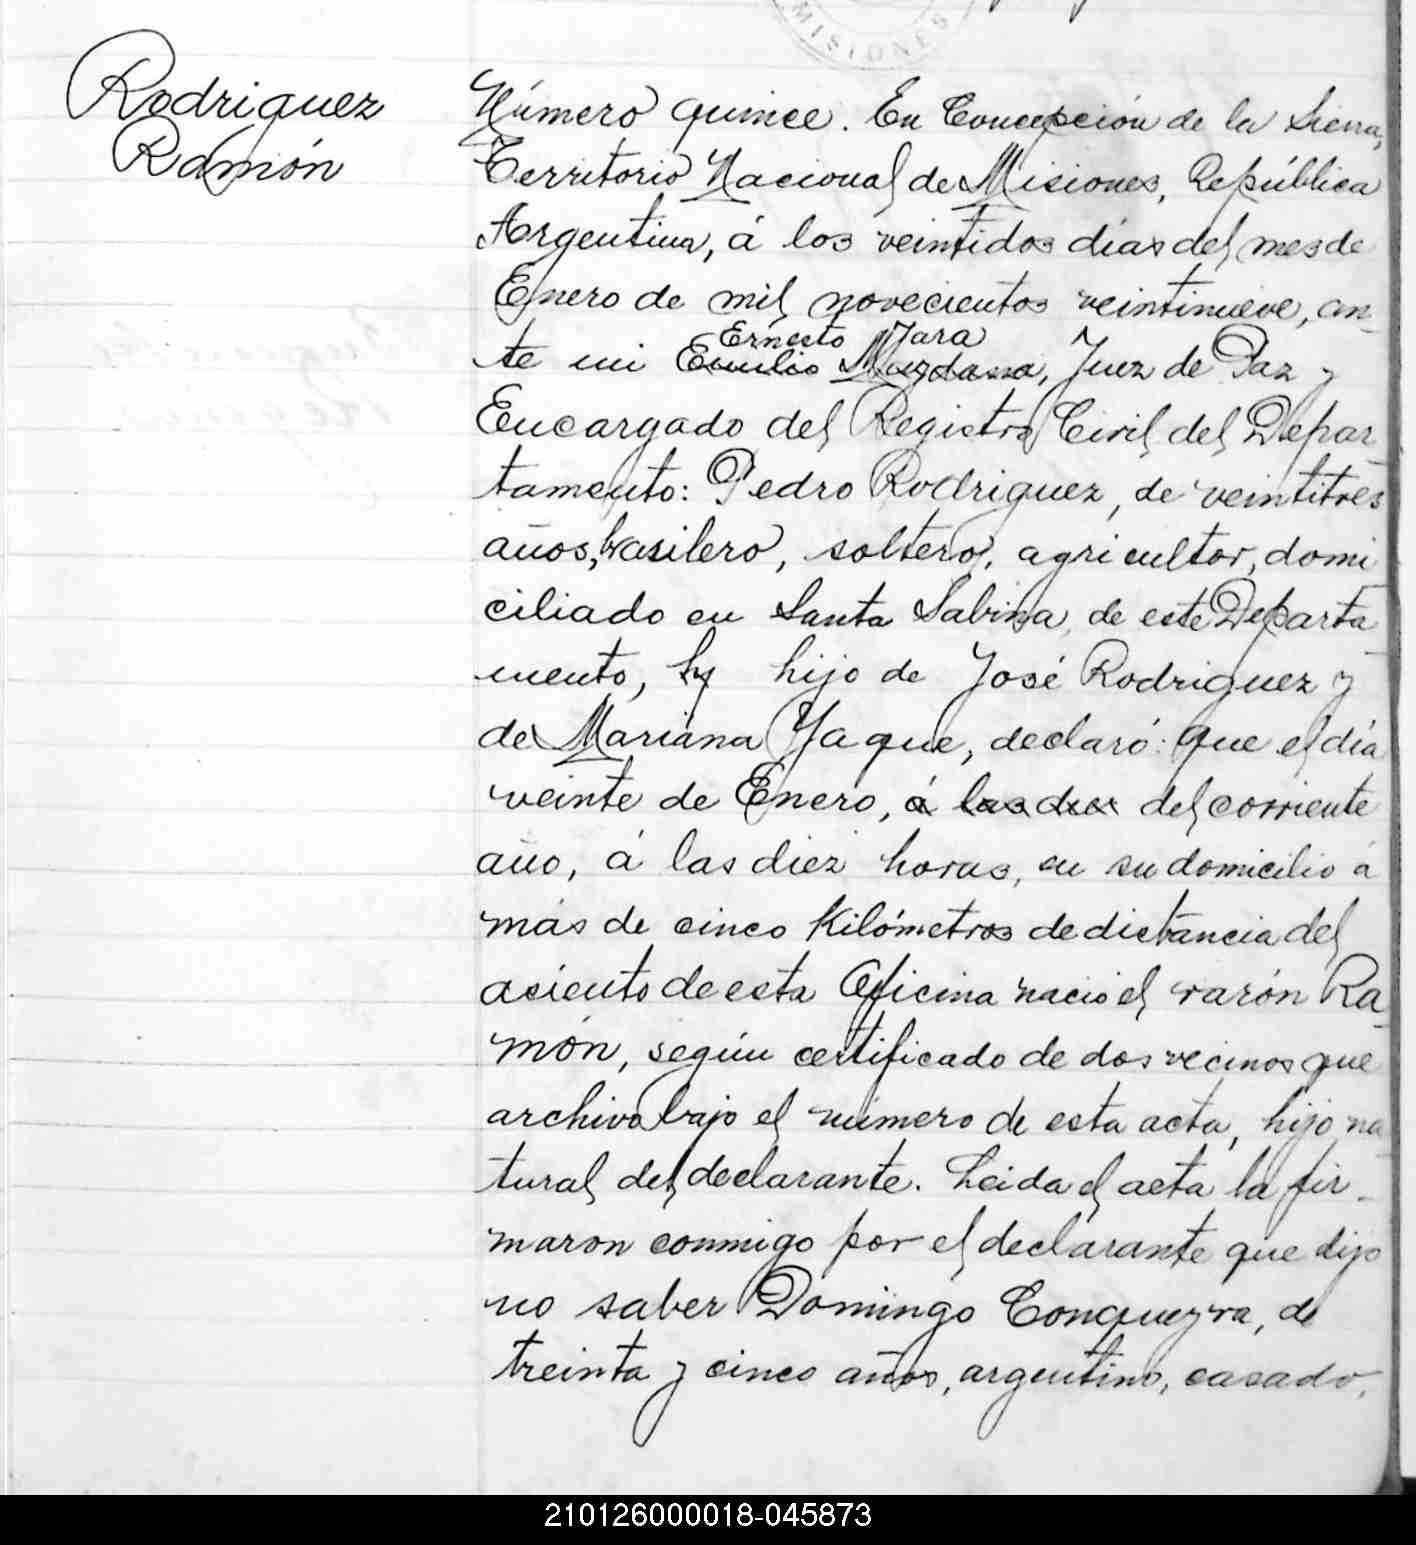 MISIONES
Rodriguez
Ramón
Número quince. En Concepción de la Sierra,
Territorio Nacional de Misiones, República
Argentina, á los veintidos días del mes de
Enero de mil novecientos veintinueve, an-
Ernesto Jara
te mi Emilio Magdana, Juez de Paz y
Encargado del Registro Civil del Depar-
tamento: Pedro Rodriguez, de veintitres
años, brasilero, soltero, agricultor, domi
ciliado en Santa Sabina, de este Departa
mento, hijo de José Rodriguez y
de Mariana Yaque, declaró: Que el día
veinte de Enero, á las diez del corriente
año, á las diez horas, en su domicilio á
más de cinco Kilómetros de distancia del
asiento de esta Oficina nació el varón Ra-
món, según certificado de dos vecinos que
archivo bajo el número de esta acta, hijo na
tural del declarante. Leida el acta la fir-
maron conmigo por el declarante que dijo
no saber Domingo Conqueyra, de
treinta y cinco años, argentino, casado,
210126000018-045873